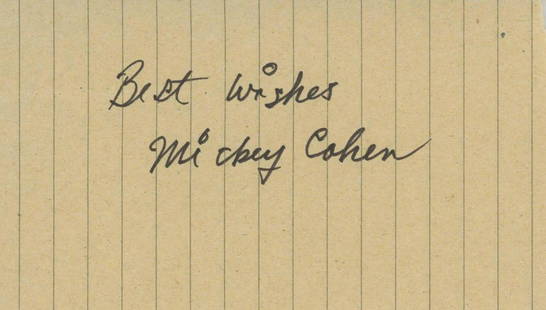 Best Wishes
Mickey Cohen